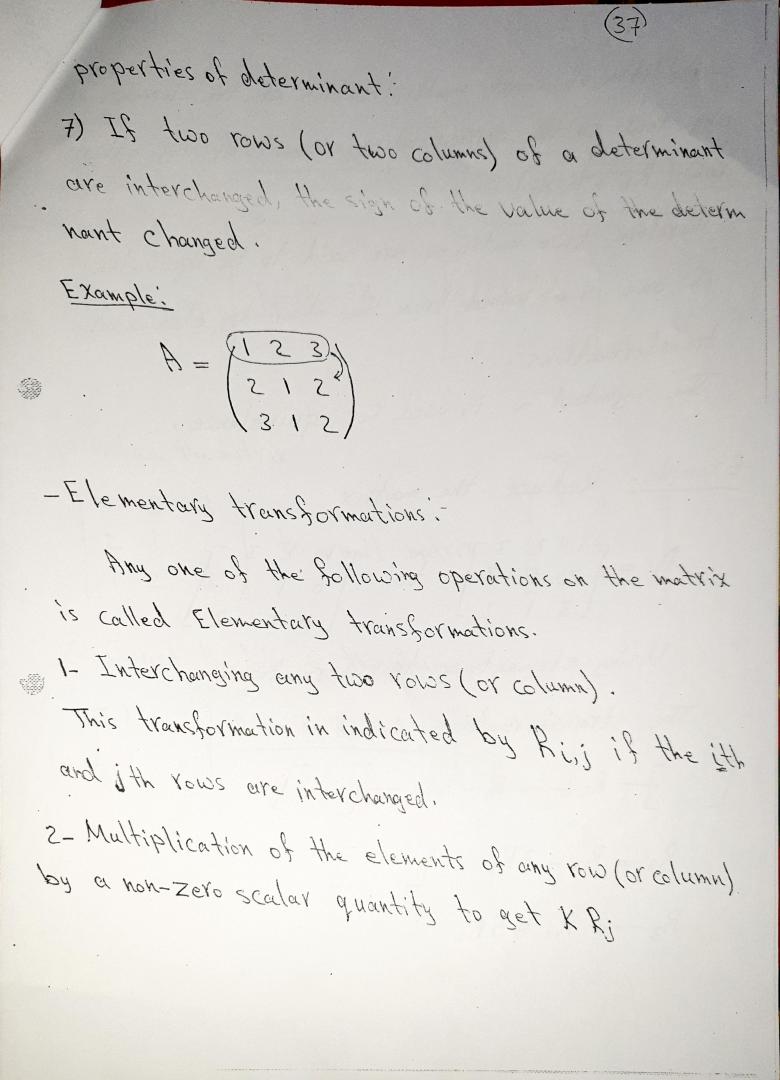 37
properties of determinant:
7) If two rows (or two columns) of a determinant
are interchanged, the sign of the value of the determ
nant changed.
Example:
A = (1 2 3
2 1 2
3 1 2)
- Elementary transformations:-
Any one of the following operations on the matrix
is called Elementary transformations.
1- Interchanging any two rows (or column).
This transformation in indicated by Ri,j if the ith
and jth rows are interchanged.
2- Multiplication of the elements of any row (or column)
by a non-zero scalar quantity to get K Rj